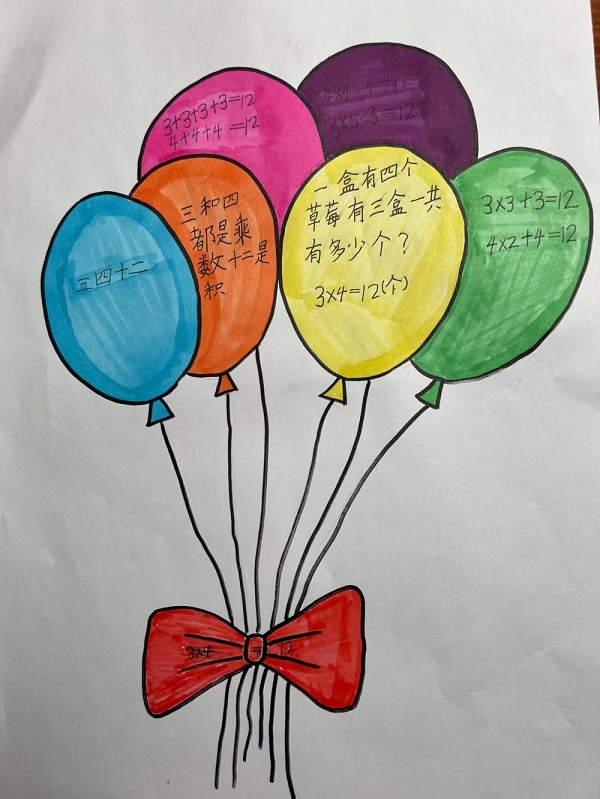 3+3+3+3=12
4+4+4 =12
4×4-4=12
3×5-3=12
三四十二
三和四
都是乘
数十二是
积
一盒有四个
草莓有三盒一共
有多少个?
3×4=12(个)
3×3+3=12
4×2+4=12
3×4 = 12